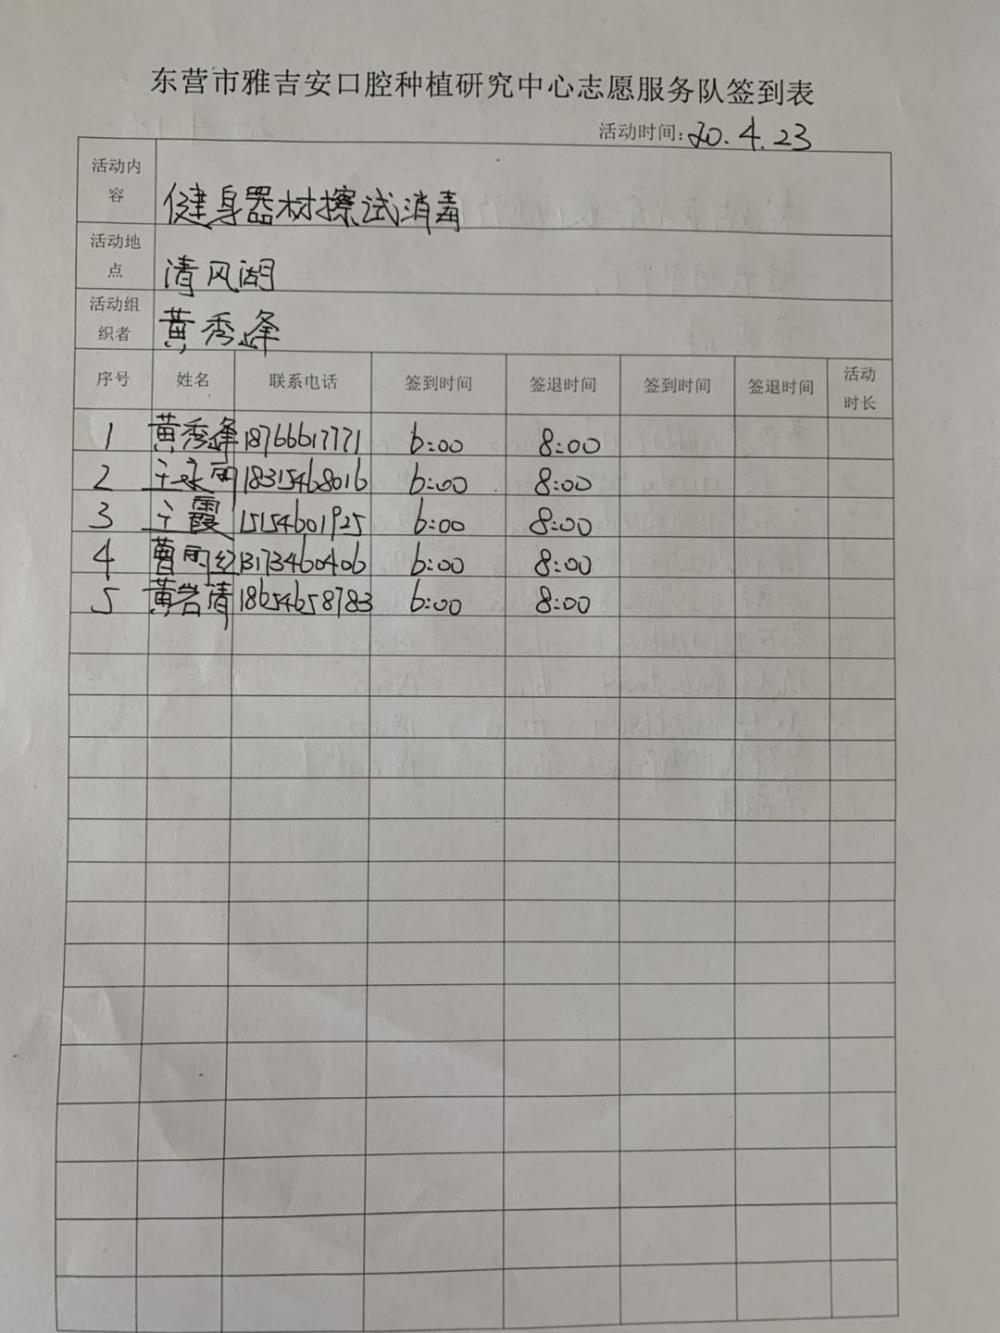 东营市雅吉安口腔种植研究中心志愿服务队签到表
活动时间:20.4.23
活动内容 健身器材擦试消毒
活动地点 清风湖
活动组织者 黄秀峰
序号 姓名 联系电话 签到时间 签退时间 签到时间 签退时间 活动时长
1 黄秀峰 18766617771 6:00 8:00
2 王永雨 18315468016 6:00 8:00
3 王霞 15154601925 6:00 8:00
4 曹雨红 13173460406 6:00 8:00
5 黄岩清 18654658783 6:00 8:00